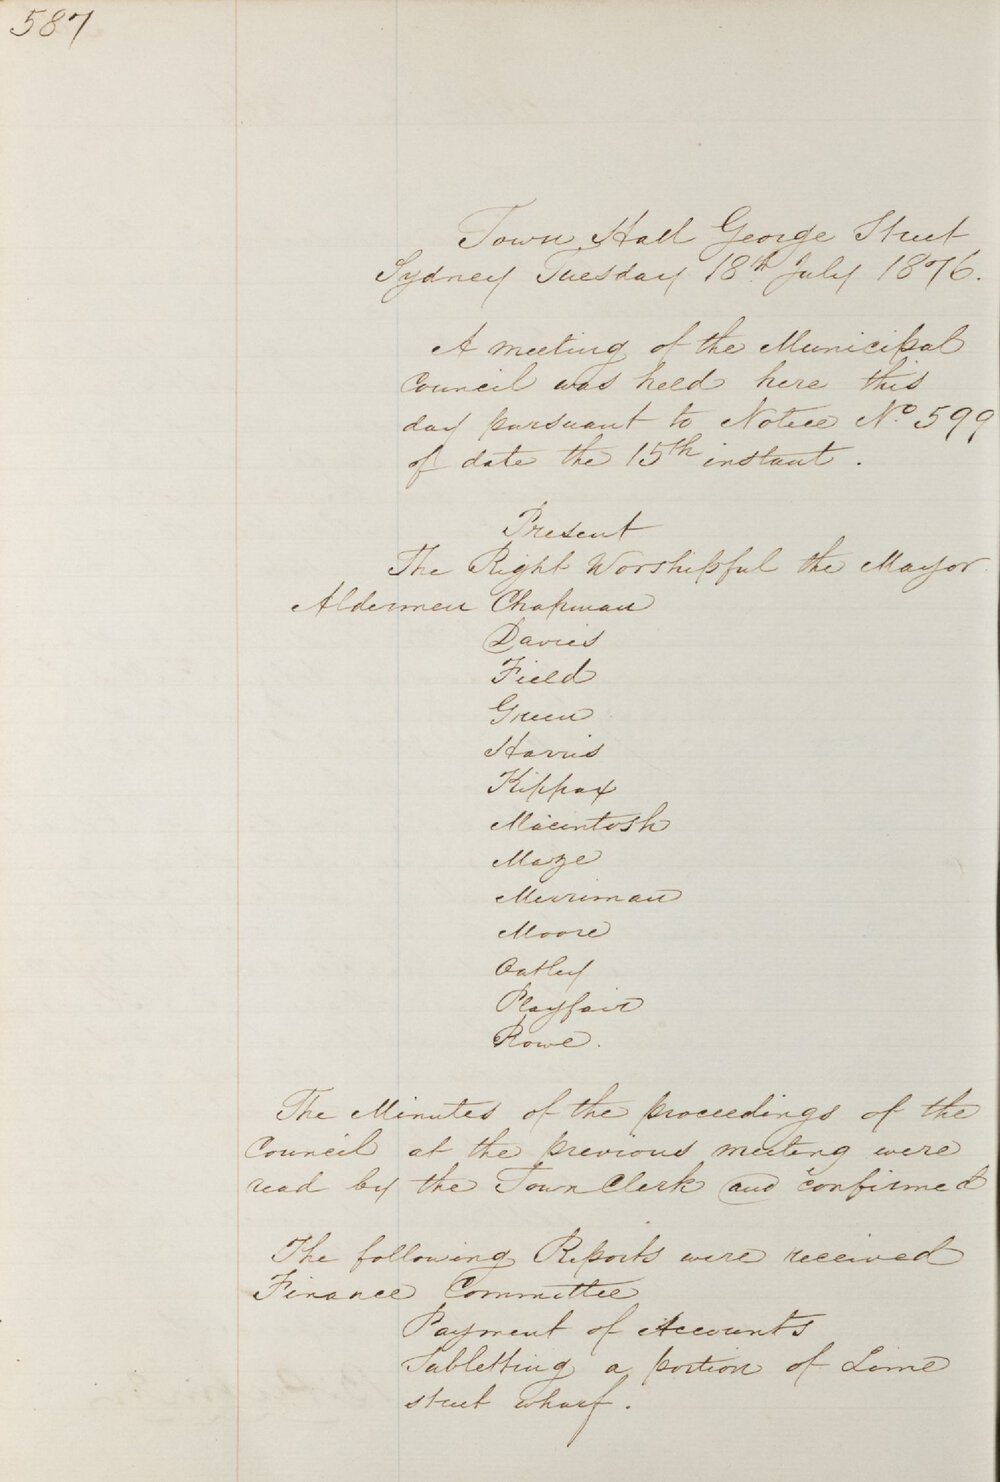 587
Town Hall George Street
Sydney Tuesday 18th July 1876.
A meeting of the Municipal
Council was held here this
day pursuant to Notice No. 599
of date the 15th instant.
Present
The Right Worshipful the Mayor.
Aldermen Chapman
Davies
Field
Green
Harris
Kippax
Macintosh
Maze
Merriman
Moore
Oatley
Playfair
Rowe.
The Minutes of the proceedings of the
Council at the previous meeting were
read by the Town Clerk and confirmed
The following Reports were received
Finance Committee
Payment of Accounts
Subletting a portion of Lime
street wharf.